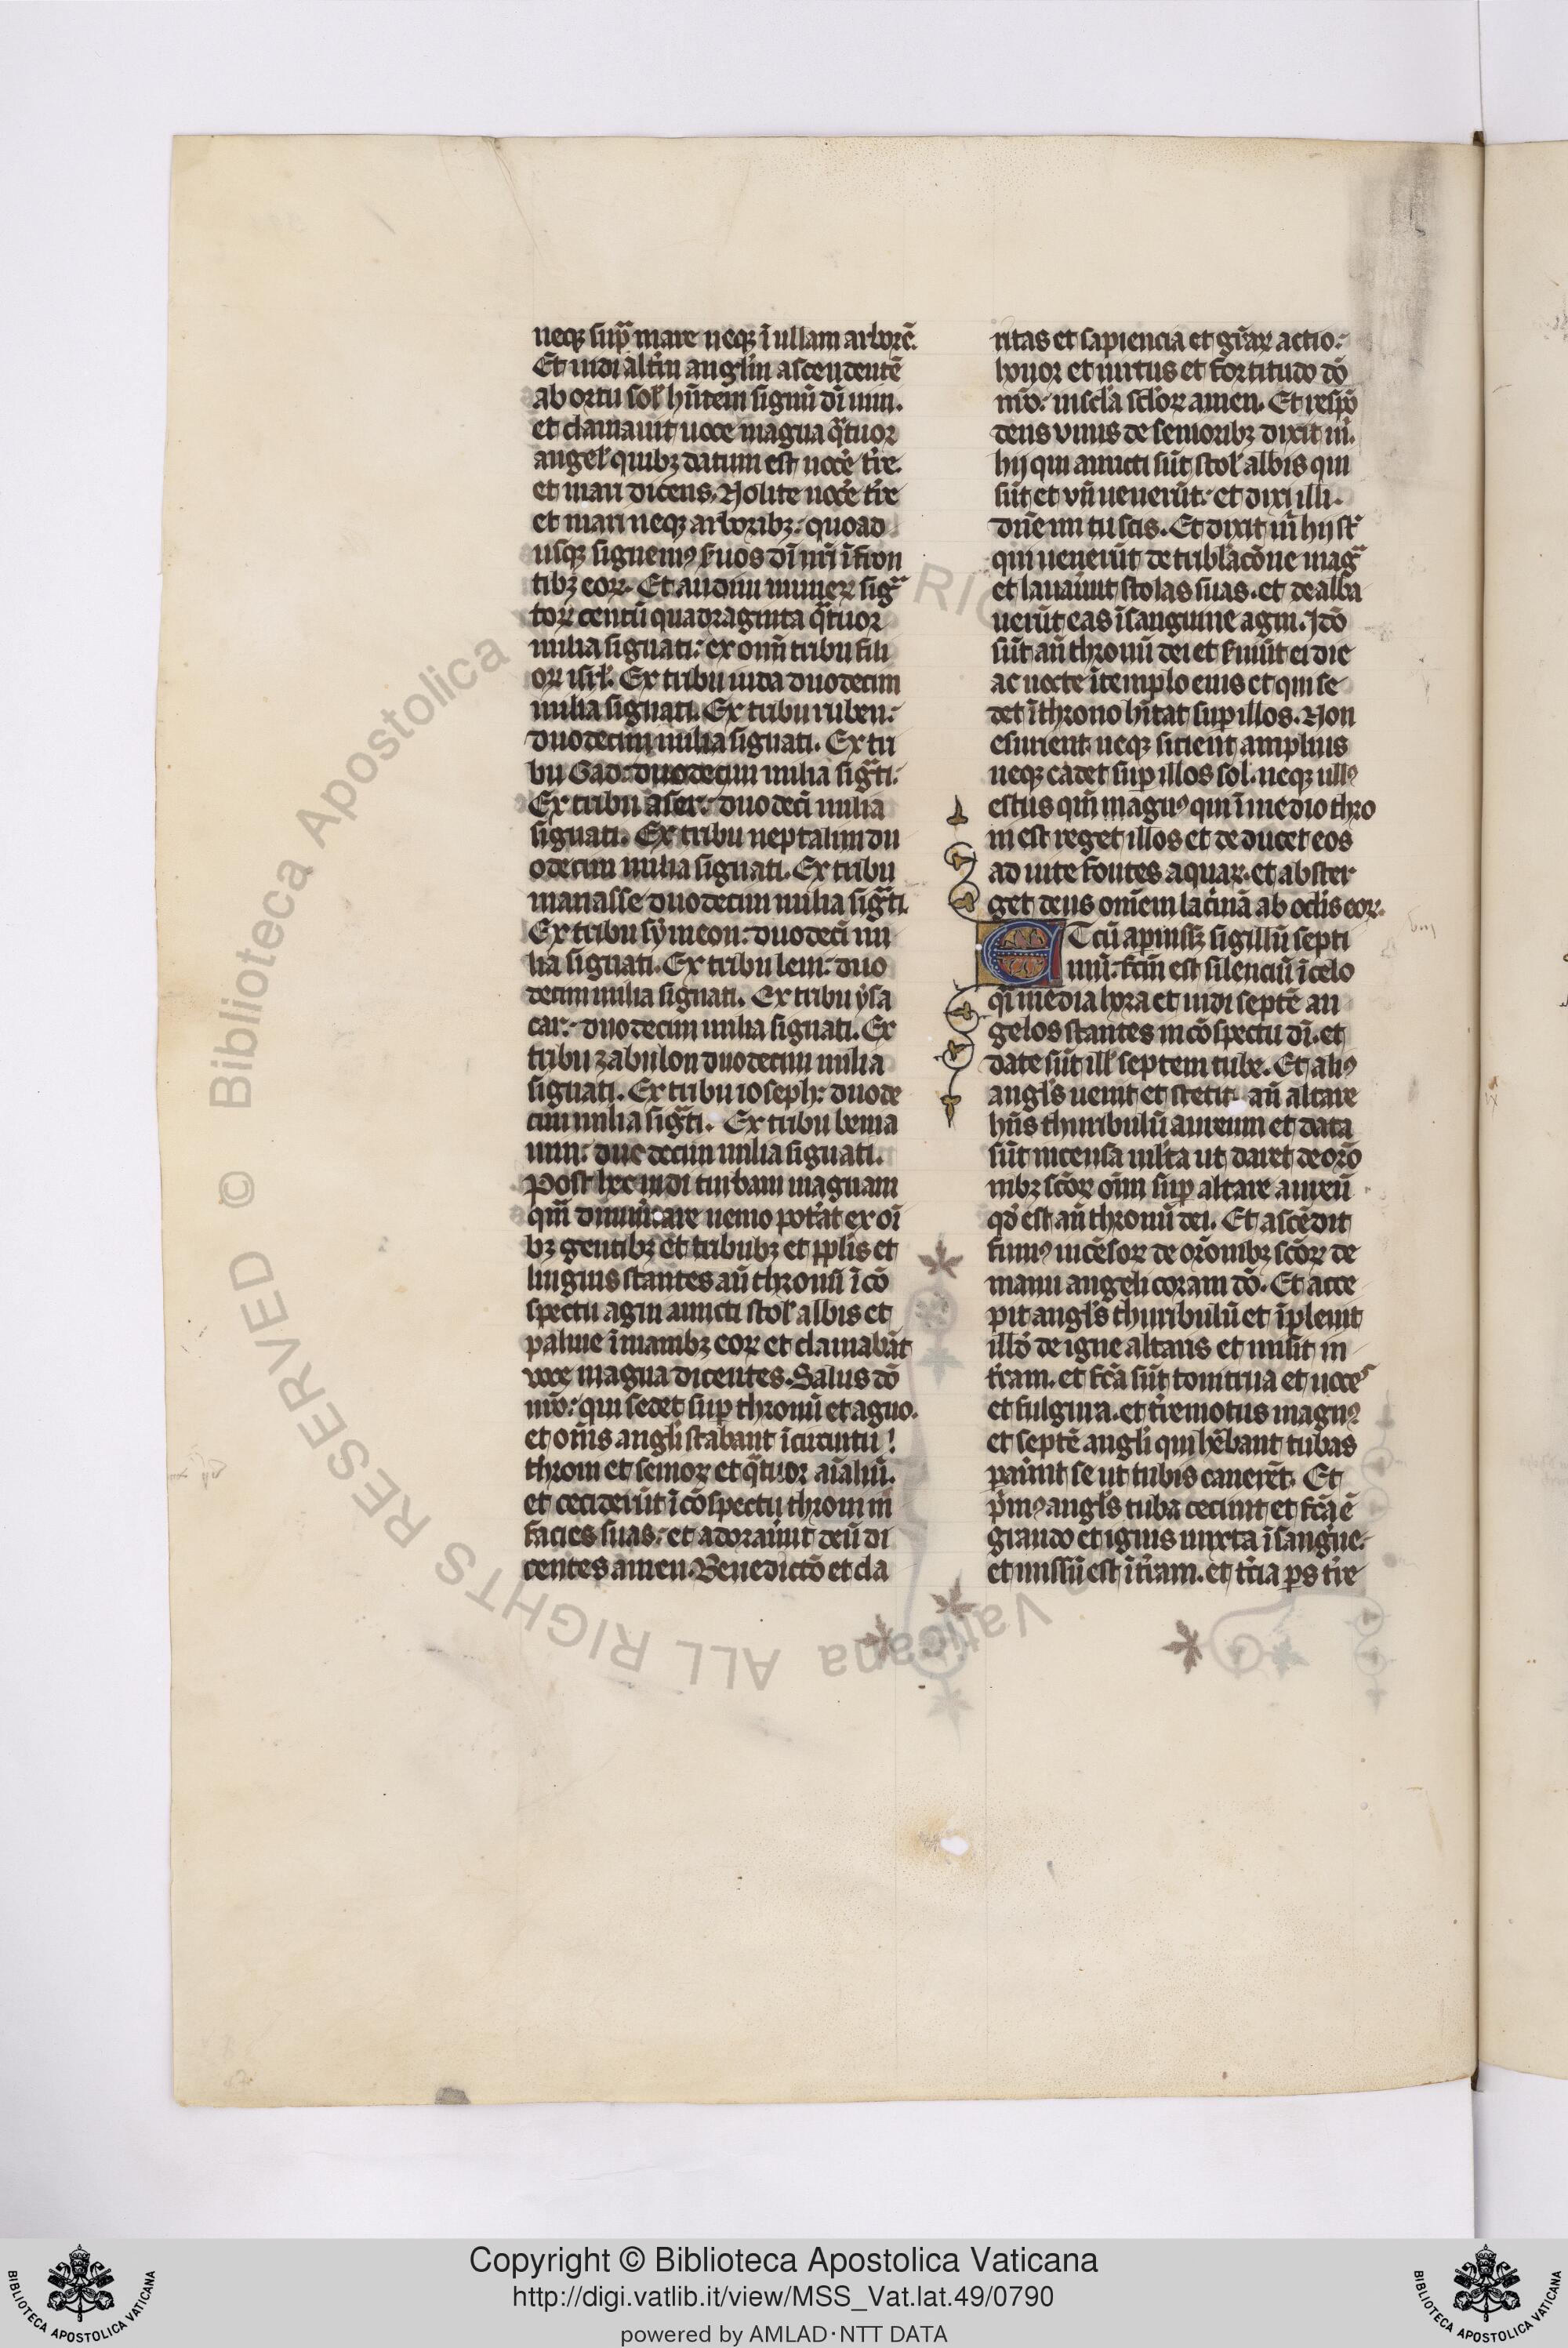 neqꝫ supᷓ mare neqꝫ ī ullam arborē.
Et uidi alt'm angl'm ascendentē
ab ortu sol' hñtem signū dī uiui.
et clamauit uoce magna qᷓtuor
angel' quibꝫ datum est noce' t're
et mari dicens. Nolite noce' t're
et mari neqꝫ arboribꝫ: quoad
usqꝫ signemꝰ s'uos dī nr̄i ī fron
tibꝫ eoꝝ. Et audiui numeꝝ sigᷓ
toꝝ centū quadraginta qᷓtuor
milia signati: ex om̄i tribu fili
oꝝ isrl'. Ex tribu iuda duodecim
milia signati. Ex tribu ruben:
duodecim milia signati. Ex tri
bu Gad: duodecim milia sigᷓti.
Ex tribu aser: duodecī milia
signati. Ex tribu neptalim du
odecim milia signati. Ex tribu
manasse duodecim milia sigᷓti.
Ex tribu symeon: duodecī mi
lia signati. Ex tribu leui: duo
decim milia signati. Ex tribu ysa
car: duodecim milia signati. Ex
tribu zabulon duodecim milia
signati. Ex tribu ioseph: duode
cim milia sigᷓti. Ex tribu benia
min: duodecim milia signati.
Post hec uidi turbam magnam
qm̄ dinumare nemo pot'at ex oī
bꝫ gentibꝫ et tribubꝫ et ppl'is et
linguis stantes añ thronū ī cō
spectu agni amicti stol' albis et
palme ī manibꝫ eoꝝ et clamabāt
uoce magna dicentes. Salus dō
nr̄o: qui sedet sup thronū et agno.
et om̄s angl'i stabant ī circuitu
throni et senioꝝ et qᷓtuor aīaliū.
et ceciderūt ī cōspectu throni in
facies suas: et adorau'unt deū di
centes amen. Benedictō et cla
ritas et sapiencia et gr̄aꝝ actio:
honor et uirtus et fortitudo dō
nr̄o: in scl'a scl'oꝝ amen. Et respō
dens vnus de senioribꝫ dixit m̄.
hij qui amicti sūt stol' albis qui
sūt et vn̄ uenerūt: et dixi illi.
Dn̄e mi tu scis. Et dixit m̄ hij st̄
qui uenerūt de tribl'acōne magᷓ
et lauau'unt stolas suas. et dealba
uerūt eas ī sanguine agni. Jdō
sūt añ thronū dei et s'uiūt ei die
ac nocte ī templo eius et qui se
det ī throno h'itat sup illos. Non
esurient neqꝫ sitient amplius
neqꝫ cadet sup illos sol. neqꝫ ullꝰ
estus qm̄ magnꝰ qui ī medio thro
ni est reget illos et deducet eos
ad uite fontes aquaꝝ. et abster
get deus om̄em lacͥmā ab ocl'is eoꝝ.
ET cū apuissꝫ sigillū septi
mū: fcm̄ est silenciū ī celo
qͣi media hora et uidi septē an
gelos stantes in cōspectu dī. et
date sūt ill' septem tube. Et aliꝰ
angl's uenit et stetit añ altare
hn̄s thuribulū aureum et data
sūt incensa ml'ta ut daret de orō
nibꝫ scōꝝ oīm sup altare aureū
qd' est añ thronū dei. Et ascēdit
fumꝰ incēsoꝝ de orōnibꝫ scōꝝ de
manu angeli coram dō. Et acce
pit angl's thuribulū et īpleuit
illd' de igne altaris et misit in
t'ram. et fcā sūt tonitrua et uoces
et fulgura. et t'remotus magnꝰ
et septē angl'i qui hēbant tubas
pau'unt se ut tubis canerēt. Et
pͥmꝰ angl's tuba cecinit et fcā ē
grando et ignis mixta ī sangͥne.
et missū est ī t'ram. et t'cia ps t're
Copyright © Biblioteca Apostolica Vaticana
http://digi.vatlib.it/view/MSS_Vat.lat.49/0790
powered by AMLAD·NTT DATA
BIBLIOTECA APOSTOLICA VATICANA
BIBLIOTECA APOSTOLICA VATICANA
© Biblioteca Apostolica Vaticana ALL RIGHTS RESERVED